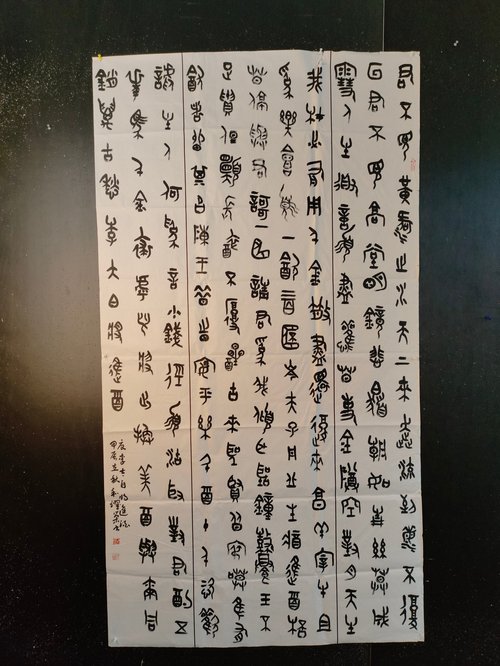 君不見黃河之水天上來奔流到海不復
回君不見高堂明鏡悲白髮朝如青絲暮成
雪人生得意須盡歡莫使金樽空對月天生
我材必有用千金散盡還復來烹羊宰牛且
為樂會須一飲三百杯岑夫子丹丘生將進酒杯
莫停與君歌一曲請君為我傾耳聽鐘鼓饌玉不
足貴但願長醉不復醒古來聖賢皆寂寞惟有
飲者留其名陳王昔時宴平樂斗酒十千恣歡
謔主人何為言少錢徑須沽取對君酌五
花馬千金裘呼兒將出換美酒與爾同
銷萬古愁李太白將進酒
李太白將進酒
甲辰立秋